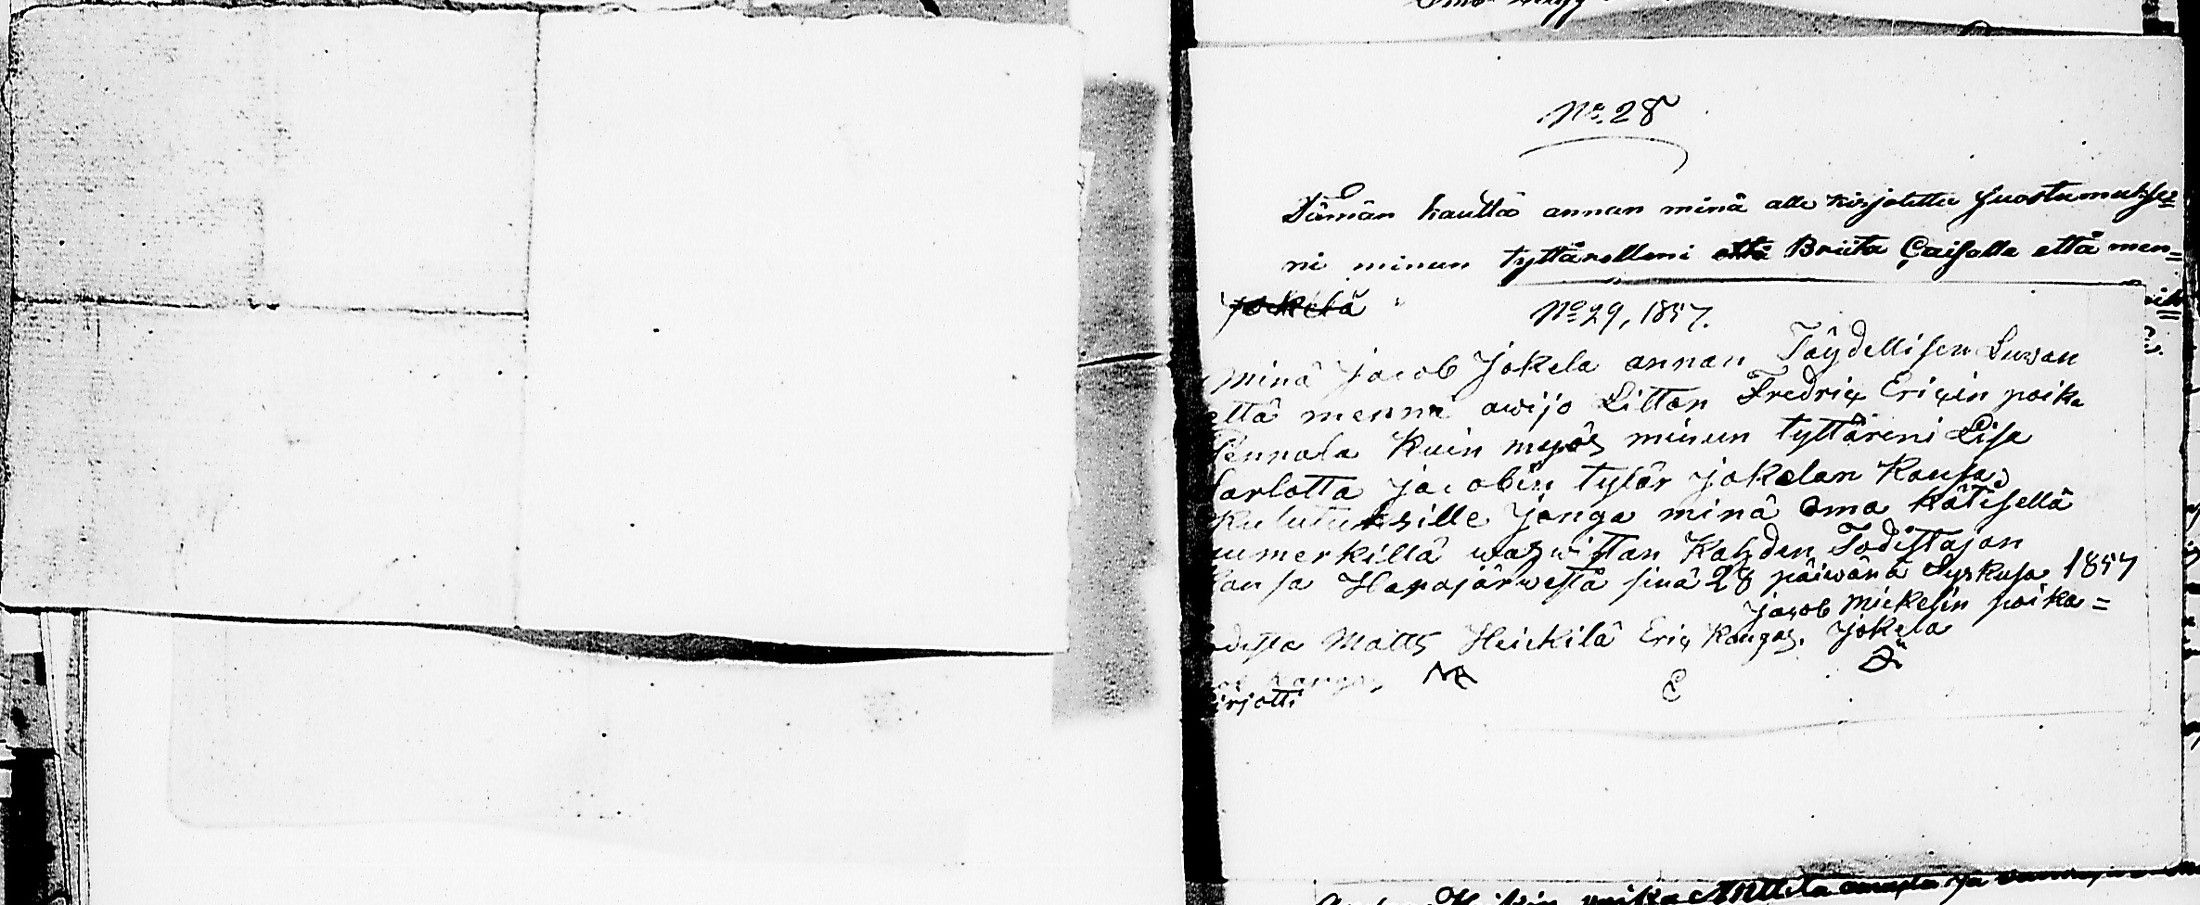 No. 28
Tämän kautta annan minä alle kirjotettu Suostumukse=
ni minun tyttärelleni että Briita Caisalle että men=
jokelä
No 29, 1857.
Minä Jacob Jokela annan Täydellisen Luwan
että mennä awijo Litton Fredrix Ericin poika
Pennala Kuin myös minun tyttäreni Lisa
Sarlotta Jacobin tytär Jokelan Kansa
Kulutuksille Jonga minä oma kätisellä
uumerkillä wahwistan Kahden Todistajan
Kansa Harajärwestä sinä 28 päiwänä Syskusa 1857
Jacob Mickelin poika=
odista Matts Heickilä Eric Kangas. Jokela
M E
irjotti